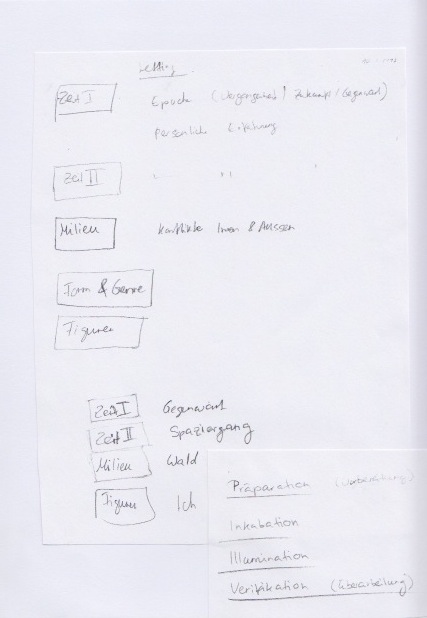 Setting
Zeit I Epoche (Vergangenheit / Zukunft / Gegenwart)
persönliche Erfahrung
Zeit II " "
Milieu Konflikte Innen & Aussen
Form & Genre
Figuren
Zeit I Gegenwart
Zeit II Spaziergang
Milieu Wald
Figuren Ich
Präparation (Vorbereitung)
Inkubation
Illumination
Verifikation (Überarbeitung)